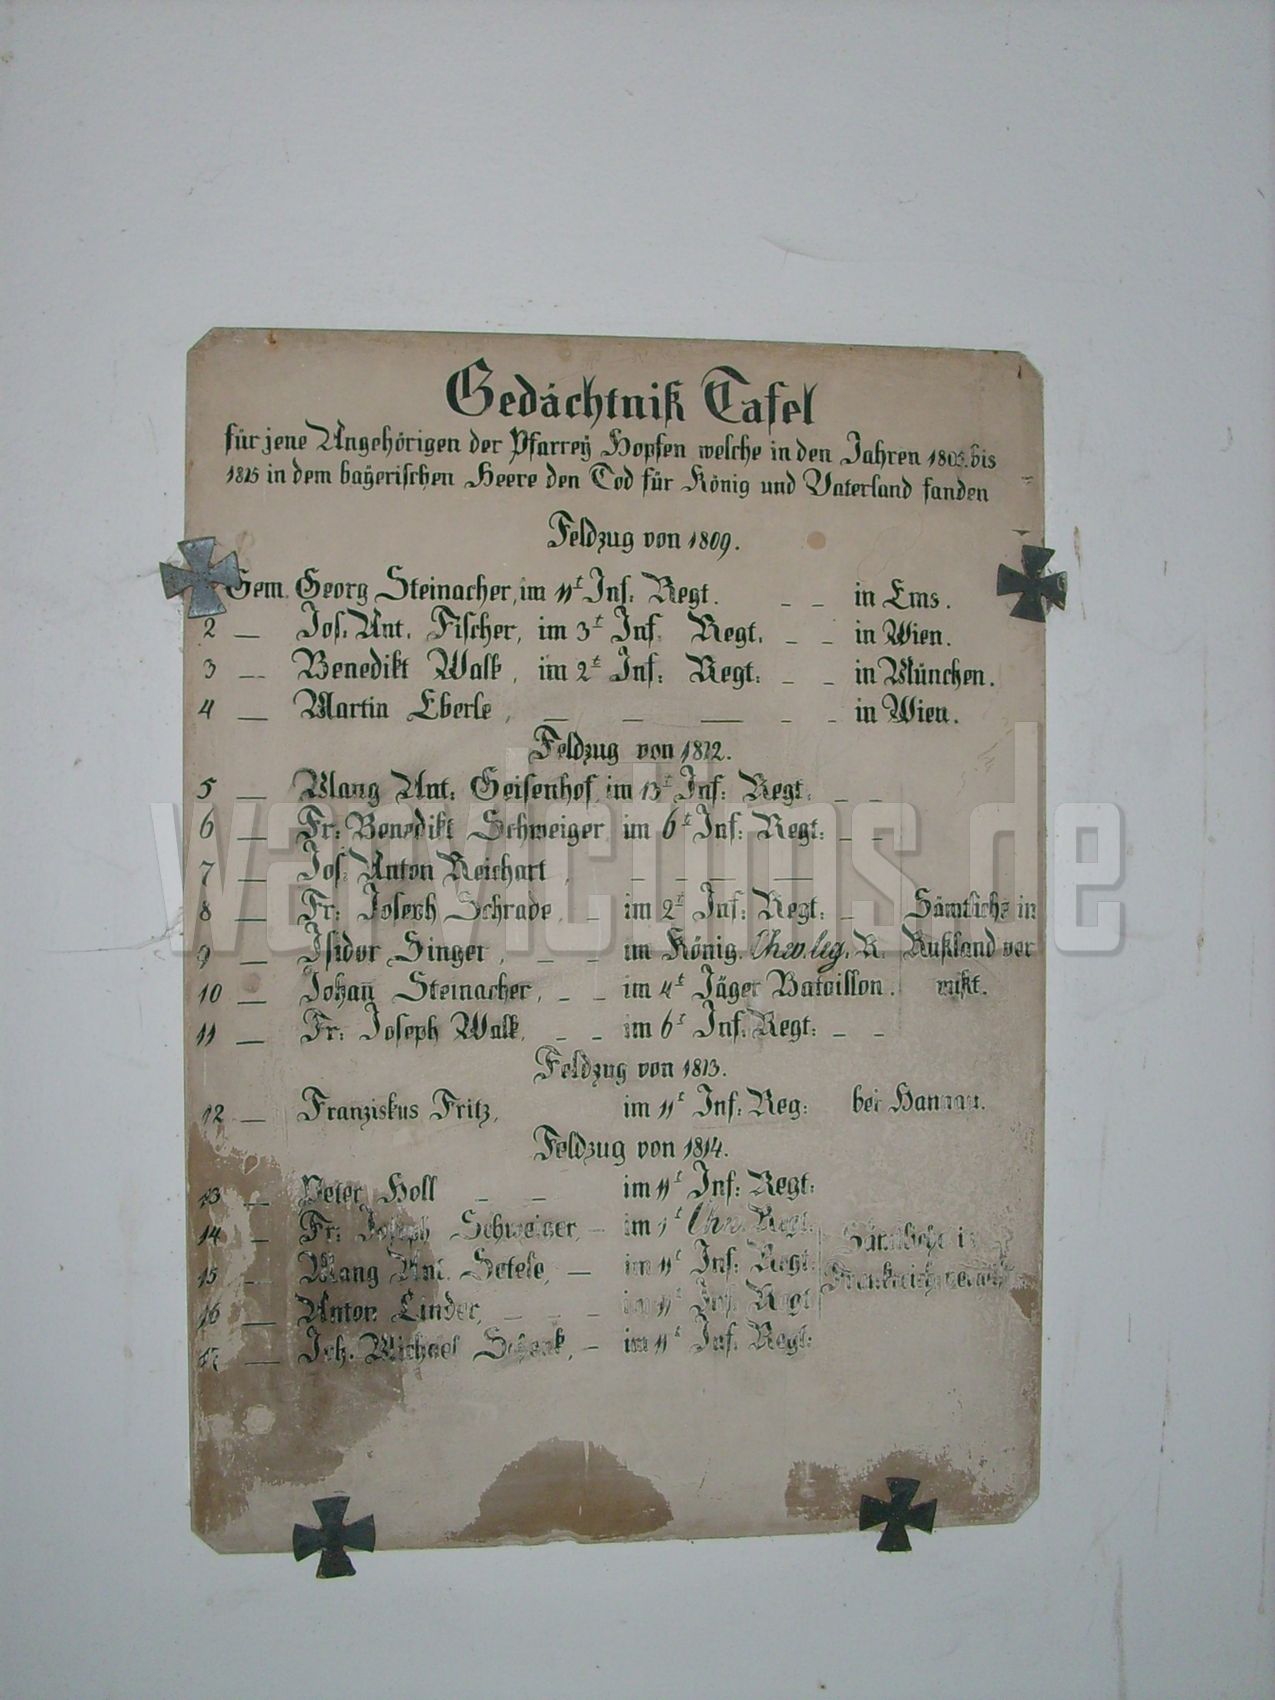 Gedächtniß Tafel
für jene Angehörigen der Pfarreÿ Hopfen welche in den Jahren 1805. bis
1815 in dem baÿerischen Heere den Tod für König und Vaterland fanden
Feldzug von 1809.
Gem. Georg Steinacher, im 11t Inf: Regt. _ _ in Ems.
2 — Jos. Ant. Fischer, im 3t Inf. Regt. _ _ in Wien.
3 — Benedikt Walk, im 2t Inf: Regt: _ _ in München.
4 — Martin Eberle, — — — _ _ in Wien.
Feldzug von 1812.
5 — Mang Ant: Geisenhof, im 13t Inf: Regt: _ _
6 — Fr: Benedikt Schweiger im 6t Inf: Regt: _ _
7 — Jos. Anton Reichart, _ _ _ —
8 — Fr: Joseph Schrade, _ im 2t Inf: Regt: _ Sämtliche in
9 — Isidor Singer, _ _ im König. Chev. leg. R. Rußland ver
10 — Johan Steinacher, _ _ im 4t Jäger Bataillon. mißt.
11 — Fr: Joseph Walk, _ _ im 6t Inf: Regt: _ _
Feldzug von 1813.
12 — Franziskus Fritz, im 11t Inf: Reg: bei Hannau.
Feldzug von 1814.
13 — Peter Holl _ _ im 11t Inf: Regt:
14 — Fr: Joseph Schweiger, — im 1t Regt. Sämtliche in
15 — Mang Ant. Setele, — im 11t Inf: Regt: Frankreich vermißt
16 — Anton Linder, _ _ _ im 11t Inf. Regt
17 — Joh. Michael Schenk, — im 11t Inf. Regt:
warvictims.de